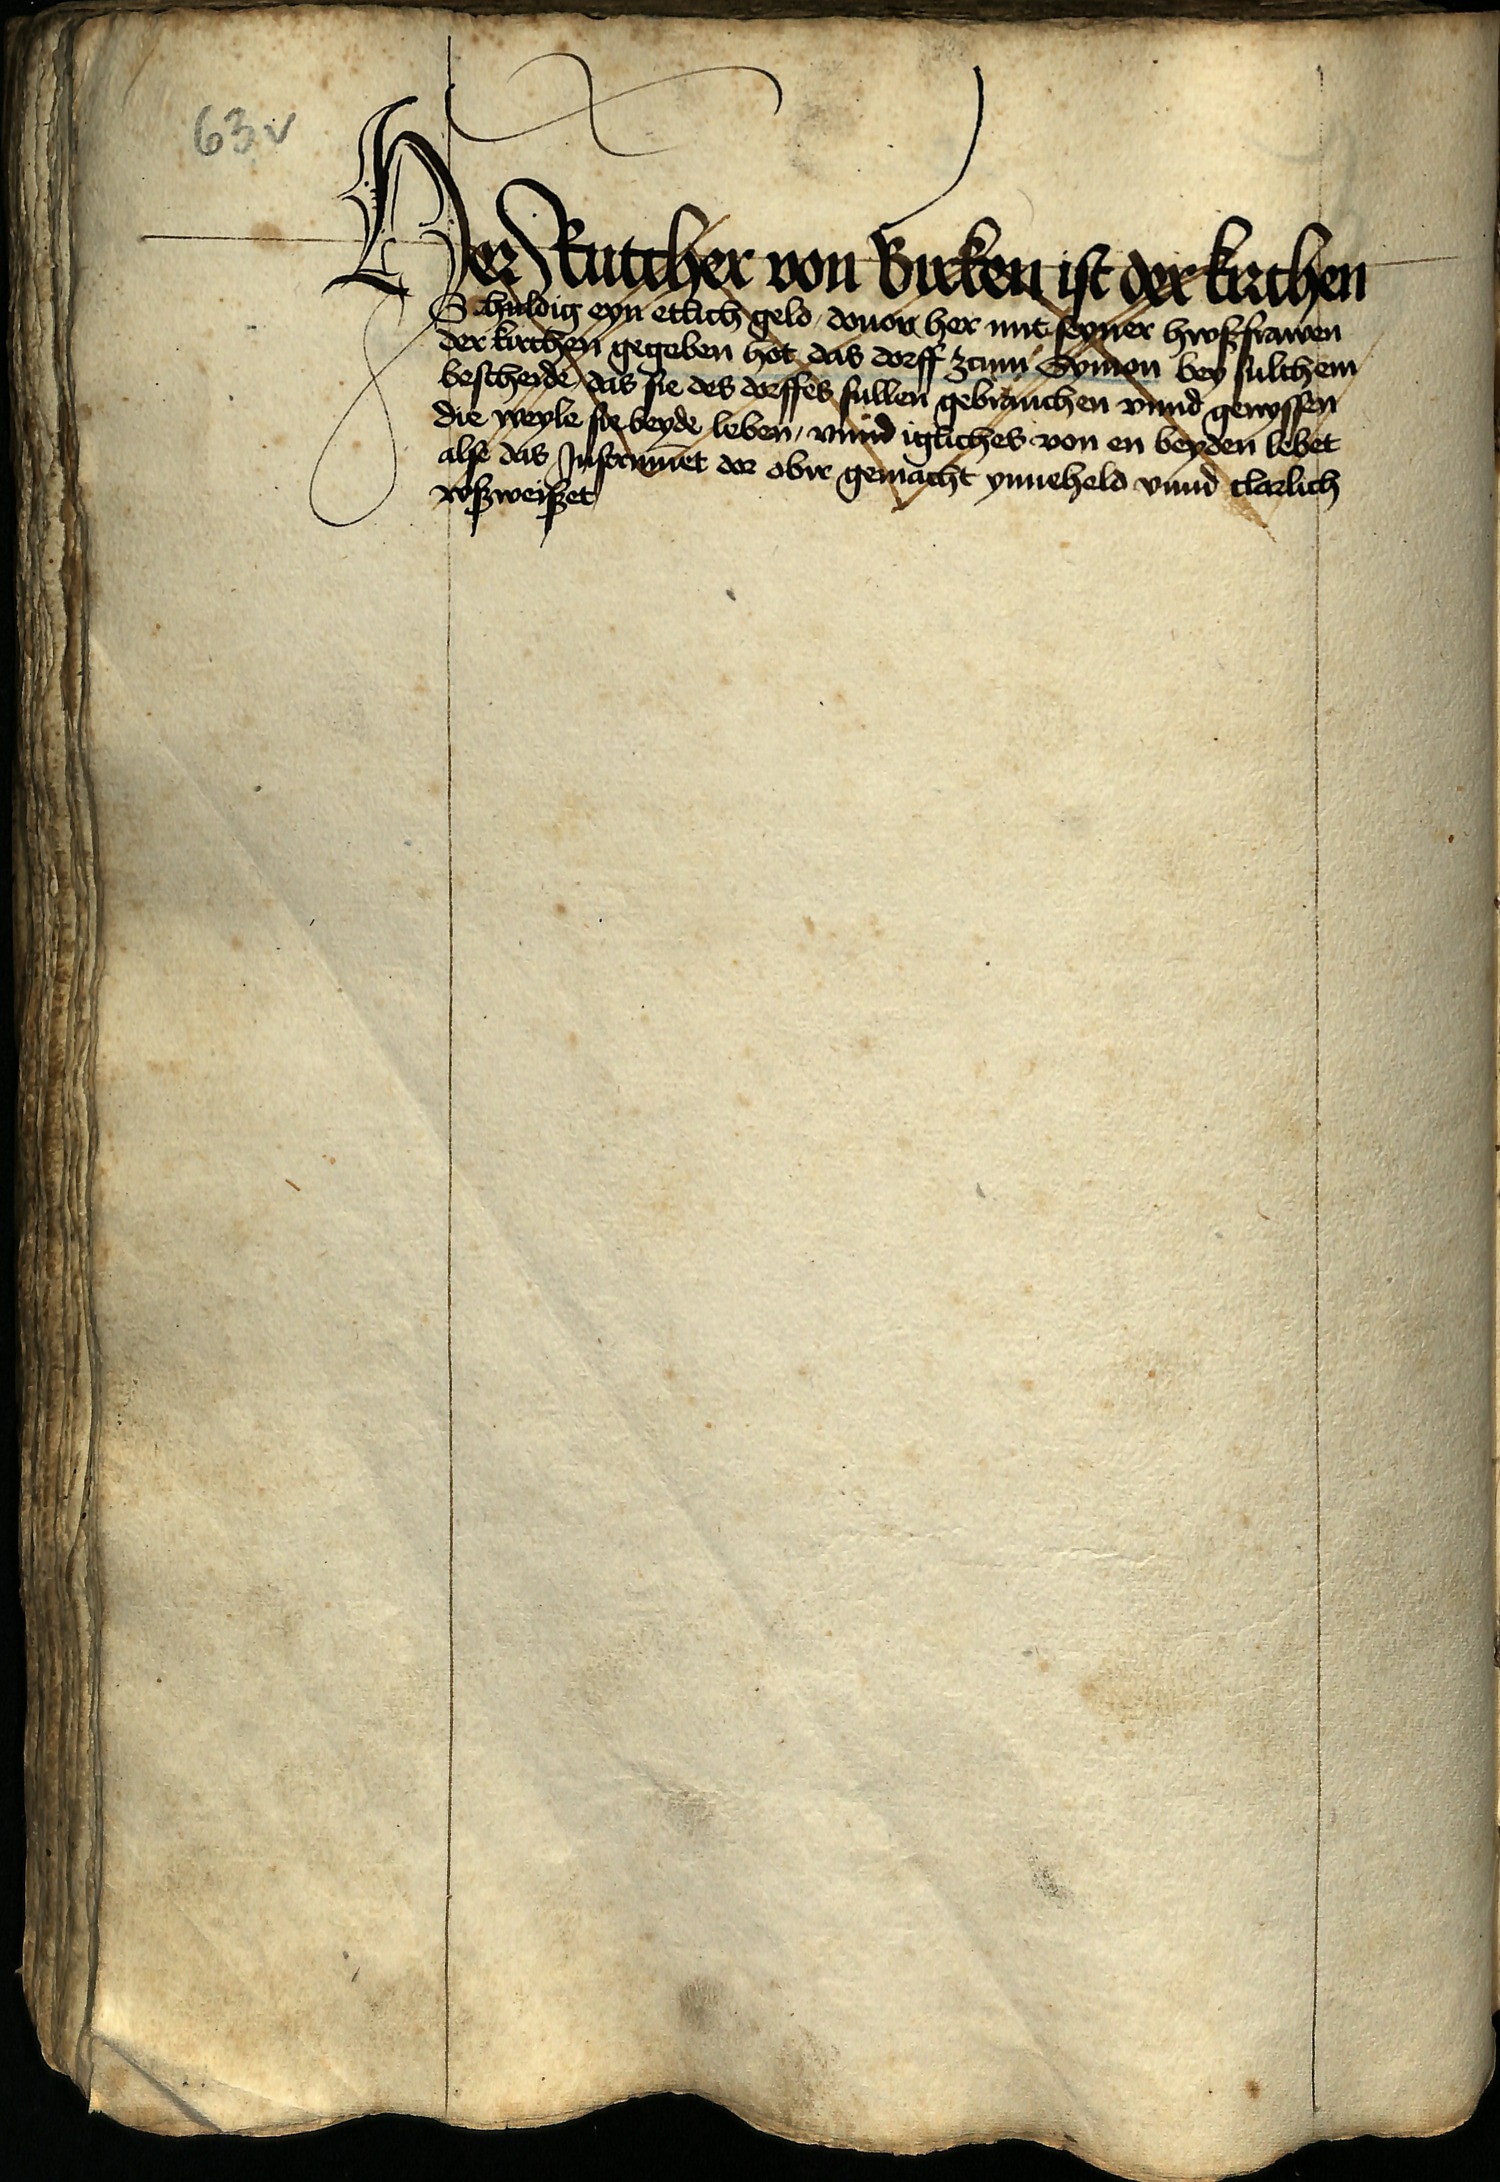 63v
Her Rutcher von Birken ist der kirchen
Schuldig eyn etlich geld / douor her mit seyner hwßfrawen
der kirchen gegeben hot das dorff zcum Symon bey sulchem
bescheide / das sie des dorffes sullen gebrauchen vnnd genyssen
die weyle sie beyde leben / vnnd igliches von en beyden lebet
alse das Instrumēt dor obir gemacht ynneheld vnnd clarlich
wßweißet